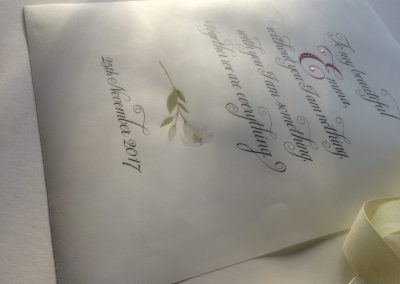 To my beautiful
Emma,
without you I am nothing,
with you I am something,
together we are everything.
25th November 2017